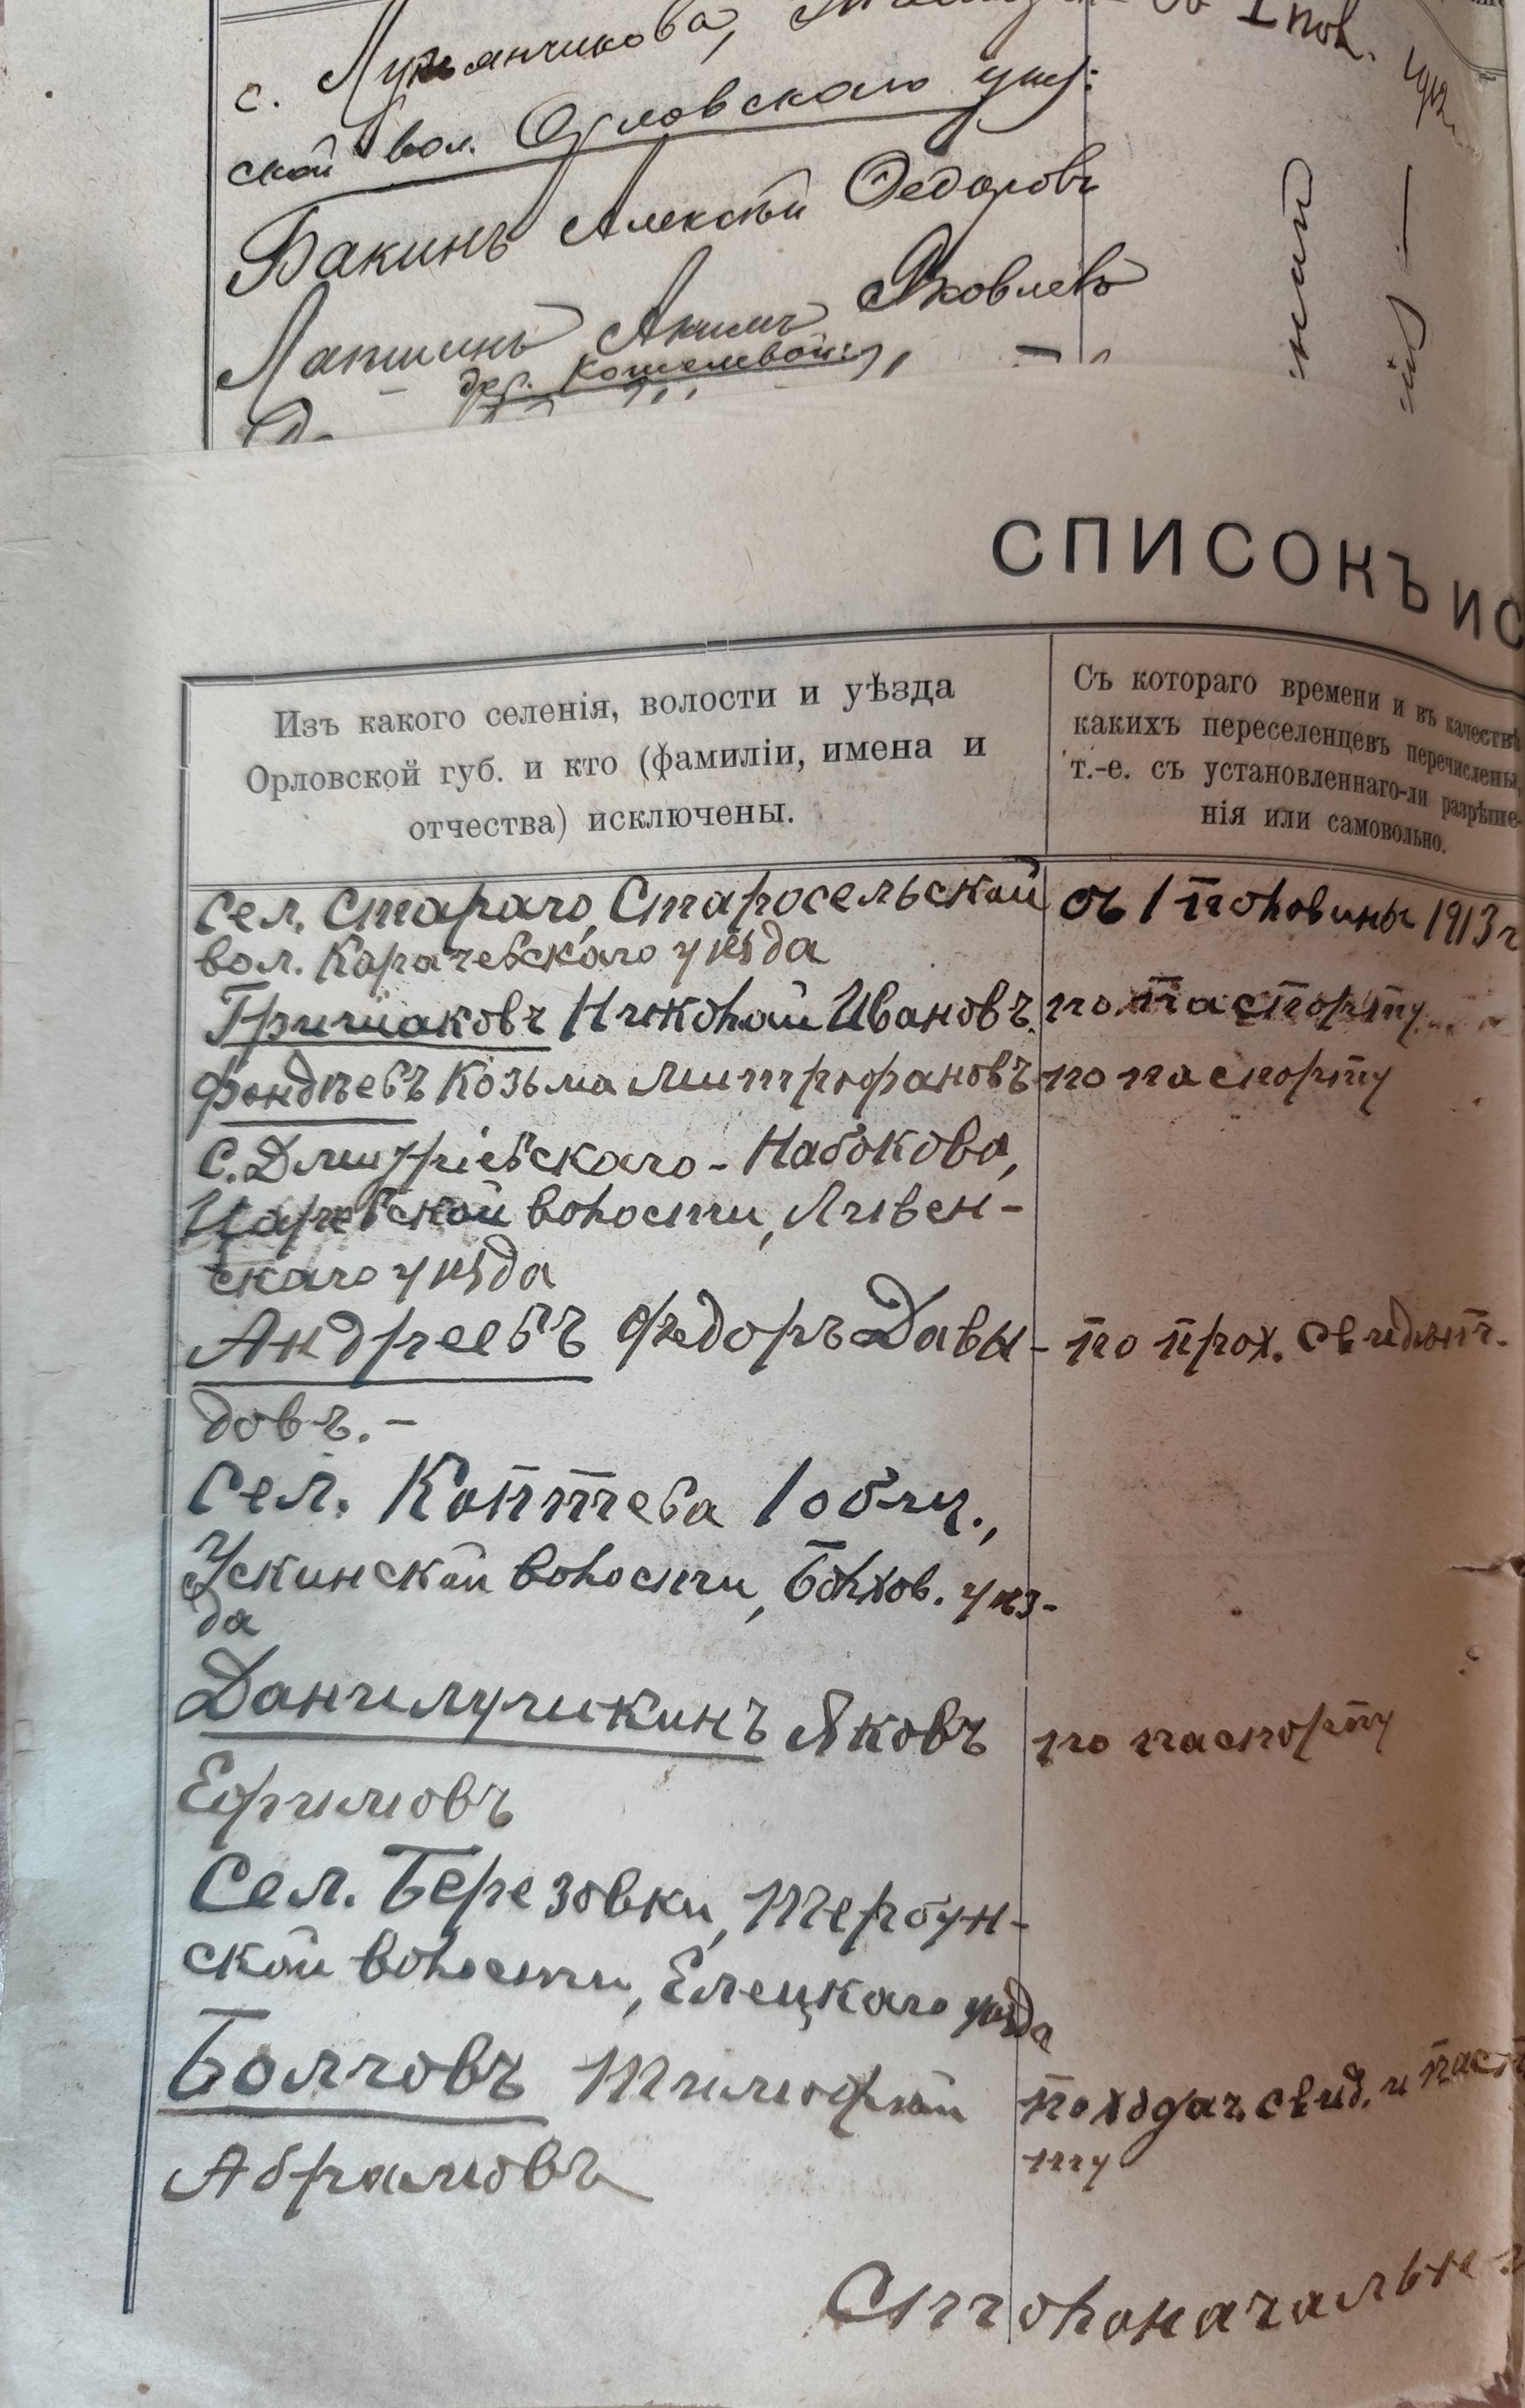 с. Лукьянчикова,
ской вол. Орловскаго уѣз:
Бакинъ Алексѣй Федоровъ
Лапшинъ Акимъ Яковлевъ
дер. Кошелевой:
СПИСОКЪ ИС
Изъ какого селенія, волости и уѣзда
Орловской губ. и кто (фамиліи, имена и
отчества) исключены.
Съ котораго времени и въ качествѣ
какихъ переселенцевъ перечислены,
т.-е. съ установленнаго-ли разрѣше-
нія или самовольно.
Сел. Стараго, Старосельской съ 1 половины 1913 г
вол. Карачевскаго уѣзда
Гришаковъ Николай Ивановъ. по паспорту
Фондѣевъ Козьма Митрофановъ по паспорту
С. Дмитріевскаго-Набокова,
Царевской волости, Ливен-
скаго уѣзда
Андреевъ Федоръ Давы- по прох. свидѣт.
довъ. -
Сел. Коптева 1 общ.,
Ускинской волости, Болхов. уѣз-
да
Данилушкинъ Яковъ по паспорту
Ефимовъ
Сел. Березовки, Тербун-
ской волости, Елецкаго уѣзда
Болговъ Тимофей по ходач. свид. и пасп
ту
Абрамовъ
Столоначальн